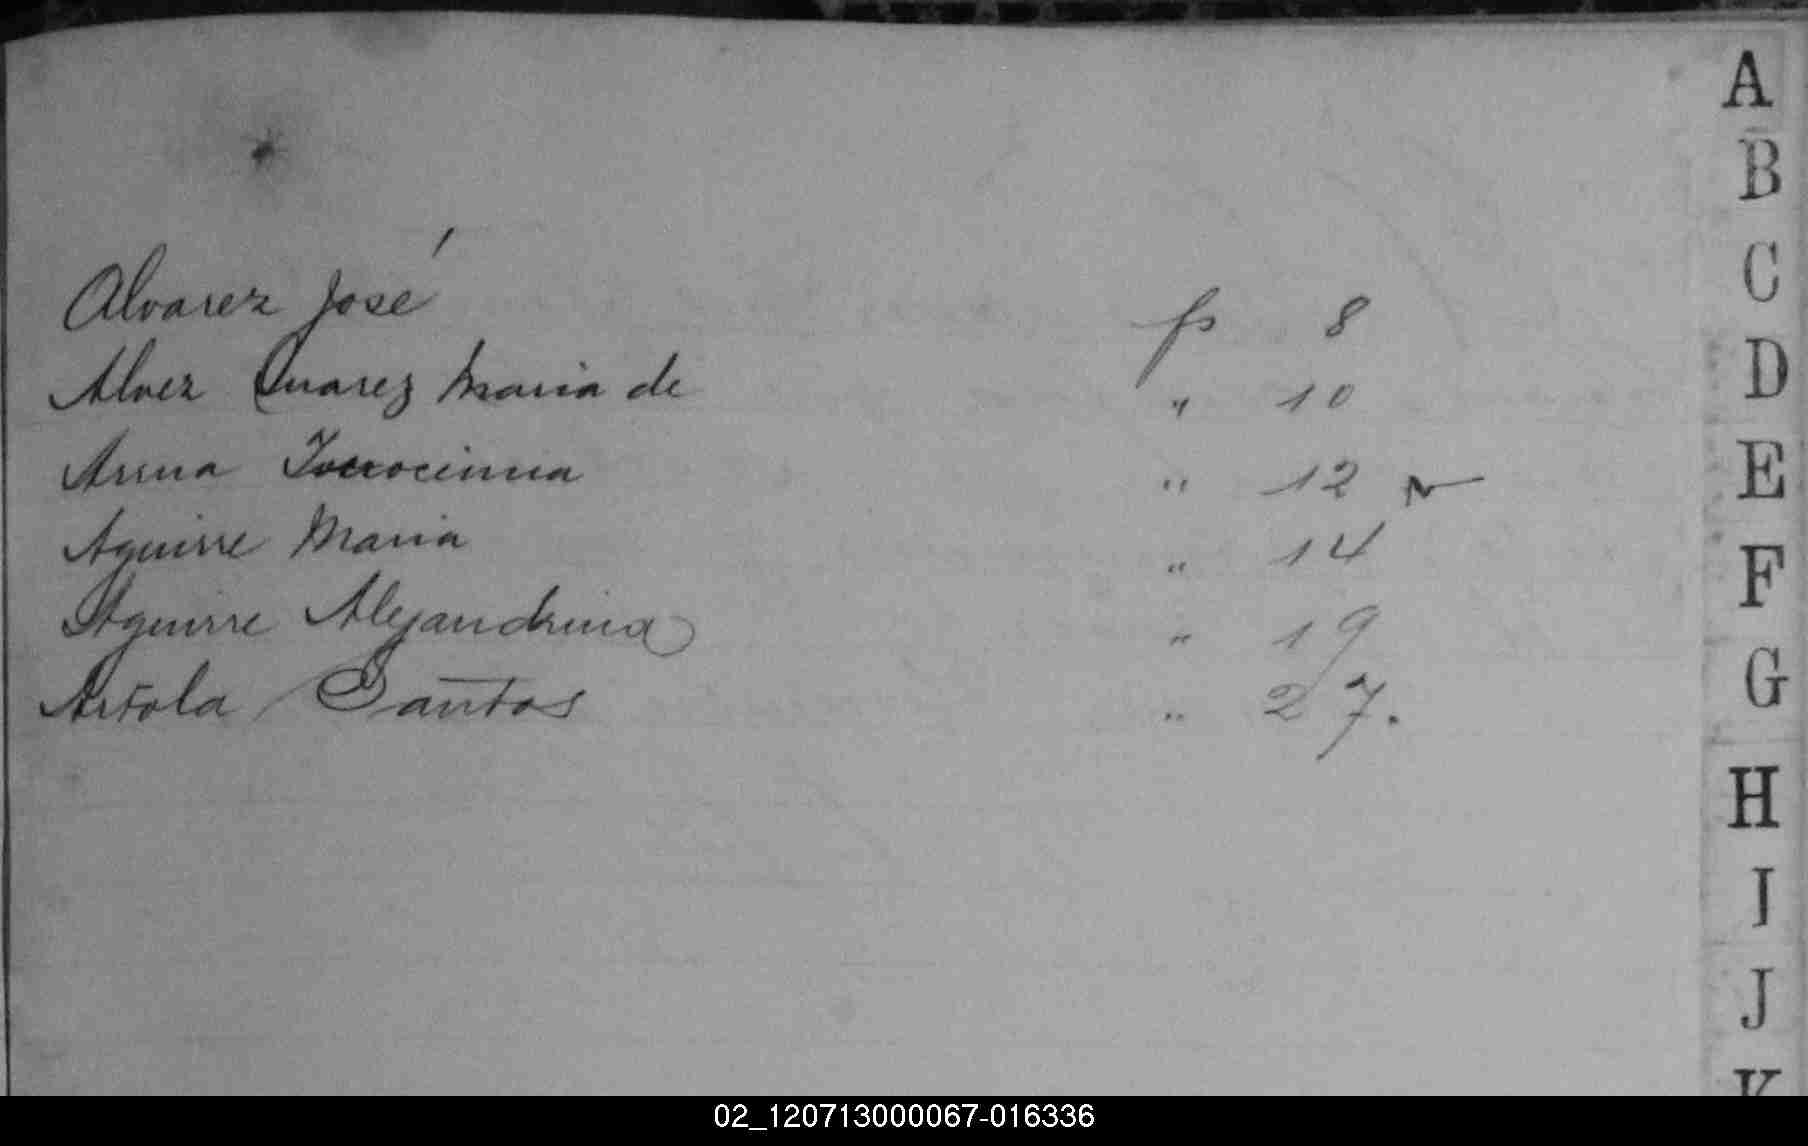 Alvarez José p 8
Alvez Suarez Maria de " 10
Arena " 12
Aguirre Maria " 14
Aguirre Alejandrina " 19
Artola Santos " 27.
A
B
C
D
E
F
G
H
I
J
K
02_120713000067-016336